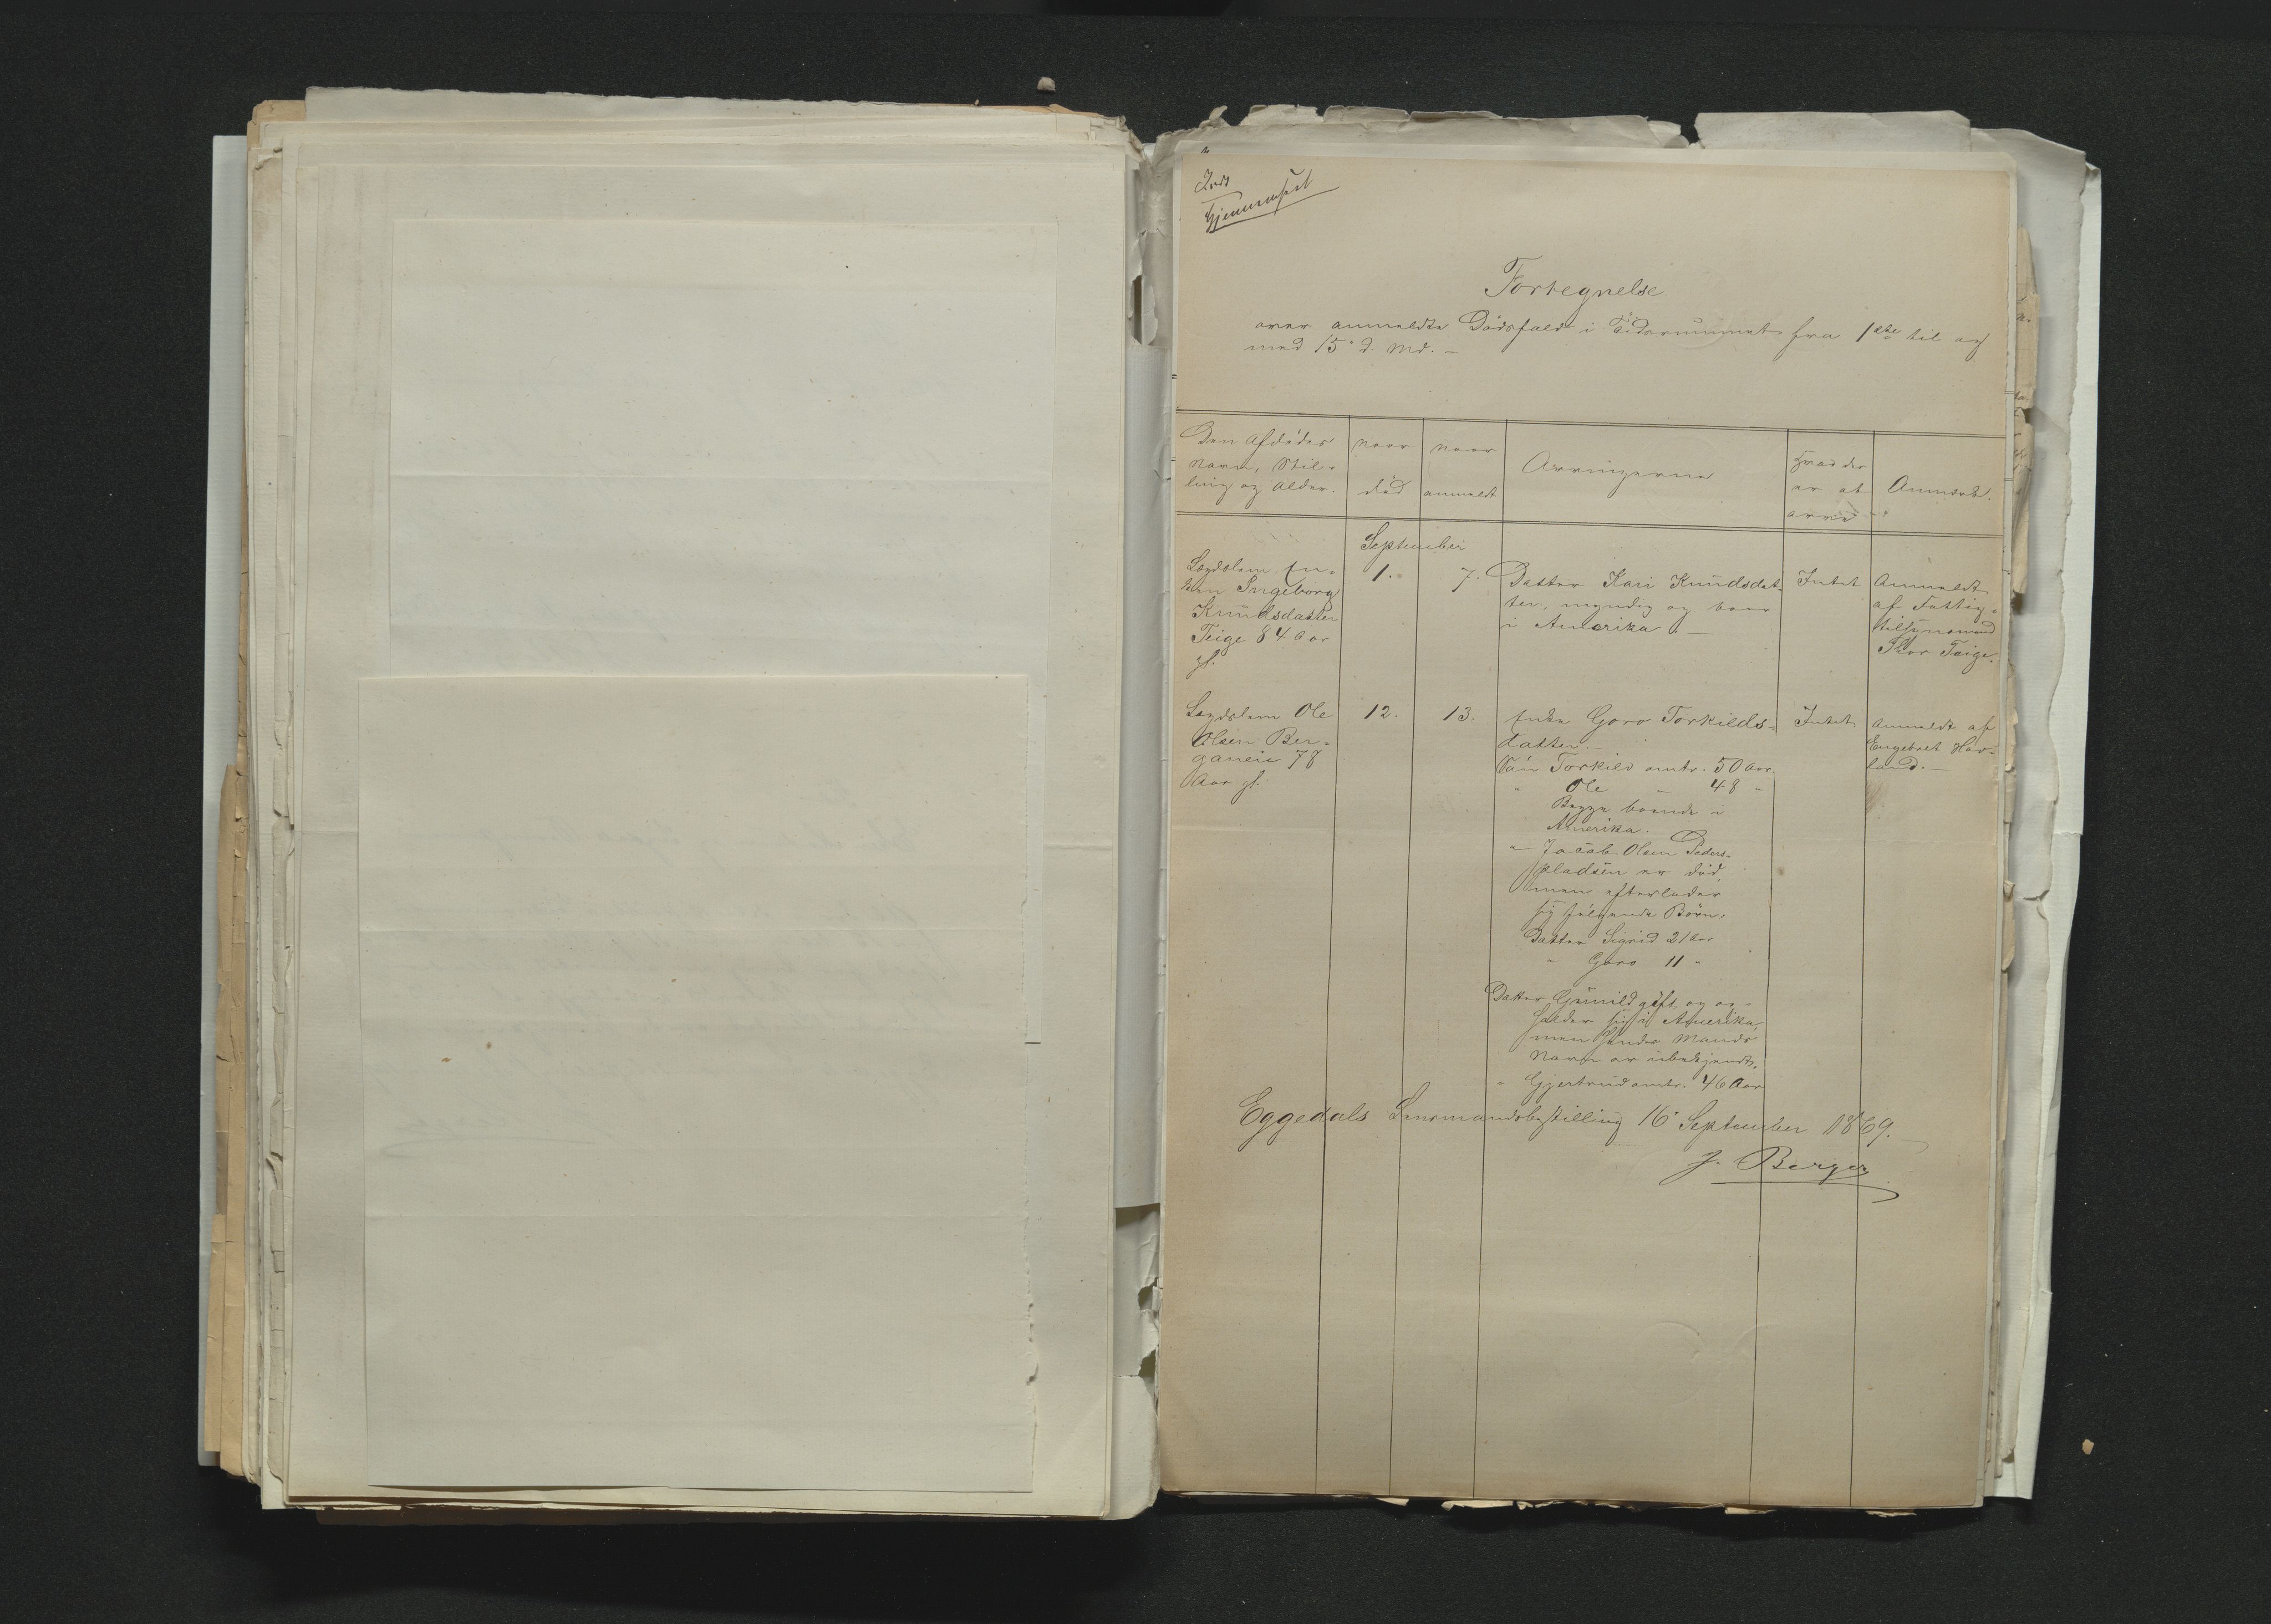 Indt
Gjennemseet
Fortegnelse
over anmeldte Dödsfald i Tidsrummet fra 1ste til og
med 15' d. Md. –
Den Afdödes
Navn, Stil-
ling og Alder.
naar
död
naar
anmeldt
Arvingerne
Hvad der
er at
arve
Anmærk.
September
Lægdslem En-
ken Ingeborg
Knudsdatter
Teige 84 Aar
gl.
1.
7.
Datter Kari Knudsdat-
ter, myndig og boer
i Amerika. –
Intet
Anmeldt
af Fattig-
tilsynsmand
Thor Teige.
Lægdslem Ole
Olsen Ber-
ganeie 78
Aar gl.
12.
13.
Enke Goro Torkilds-
datter. –
Sön Torkild omtr. 50 Aar.
" Ole – 48 "
Begge boende i
Amerika.
" Jacob Olsen Peders-
pladsen er död,
men efterlader
sig fölgende Börn:
Datter Sigrid 21 Aar
" Goro 11 "
Datter Gunild gift og op-
holder sig i Amerika,
men hendes Mands
Navn er ubekjendt.
" Gjertrud omtr. 46 Aar
Intet
Anmeldt af
Engebret Hav-
land. –
Eggedals Lensmandsbestilling 16' September 1869.
J. Berger